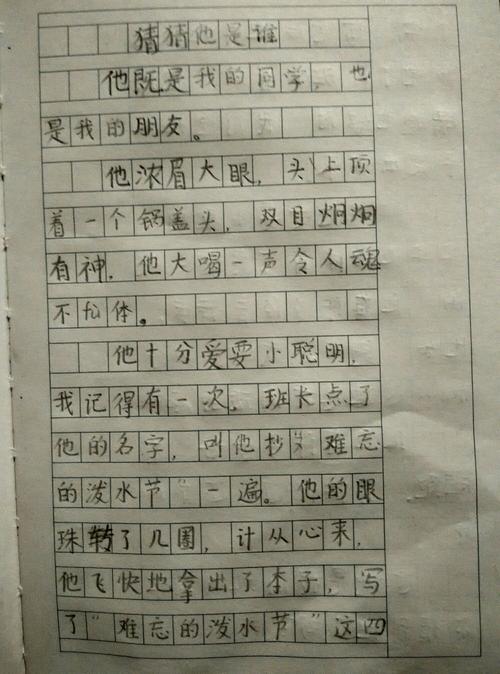 猜猜他是谁
他既是我的同学，也
是我的朋友。
他浓眉大眼，头上顶
着一个锅盖头，双目炯炯
有神．他大喝一声令人魂
不附体。
他十分爱耍小聪明．
我记得有一次，班长点了
他的名字，叫他抄“难忘
的泼水节”一遍。他的眼
珠转了几圈，计从心来．
他飞快地拿出了本子，写
了“难忘的泼水节”这四